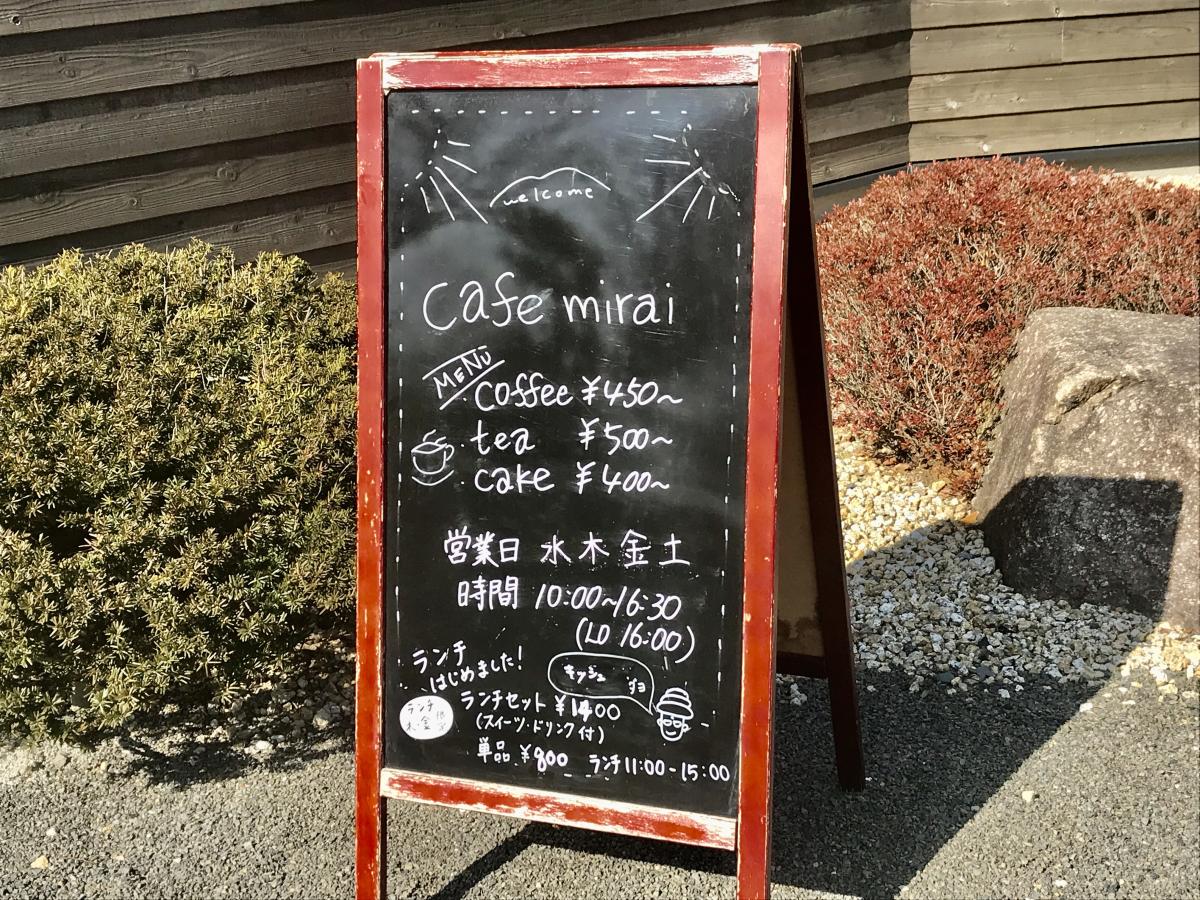 welcome
Cafe mirai
MENU
・coffee ¥450～
tea ¥500～
・cake ¥400～
営業日 水木金土
時間 10:00～16:30
(LO 16:00)
ランチ
はじめました!
キッシュ
ランチセット ¥1400
(スイーツ・ドリンク付)
ランチ
単品 ¥800 ランチ11:00-15:00